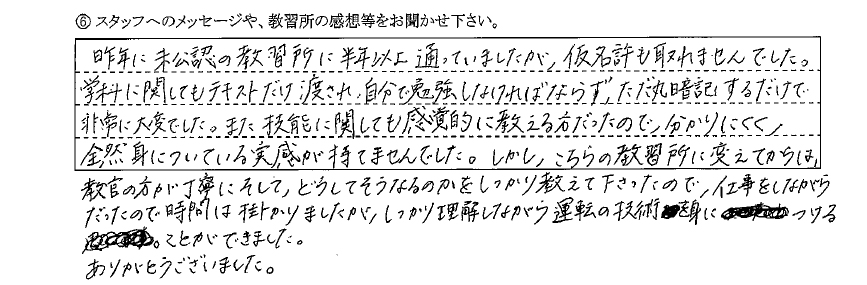 ⑥ スタッフへのメッセージや、教習所の感想等をお聞かせ下さい。
昨年に未公認の教習所に半年以上通っていましたが、仮名許も取れませんでした。
学科に関してもテキストだけ渡され、自分で勉強しなければならず、ただ丸暗記するだけで
非常に大変でした。また技能に関しても感覚的に教える方だったので、分かりにくく、
全然身についている実感が持てませんでした。しかし、こちらの教習所に変えてからは、
教官の方が丁寧にそして、どうしてそうなるのかをしっかり教えて下さったので、仕事をしながら
だったので時間は掛かりましたが、しっかり理解しながら運転の技術を身につける
ことができました。
ありがとうございました。